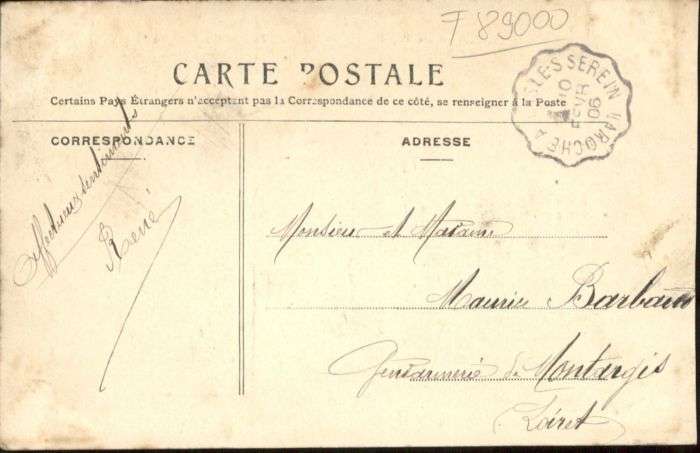 F 89000
CARTE POSTALE
Certains Pays Étrangers n'acceptent pas la Correspondance de ce côté, se renseigner à la Poste
LAROCHE A L'ISLE-S-SEREIN
10
FEVR
06
CORRESPONDANCE
Affectueux sentiments
René
ADRESSE
Monsieur et Madame
Maurice
Gendarmerie de Montargis
Loiret